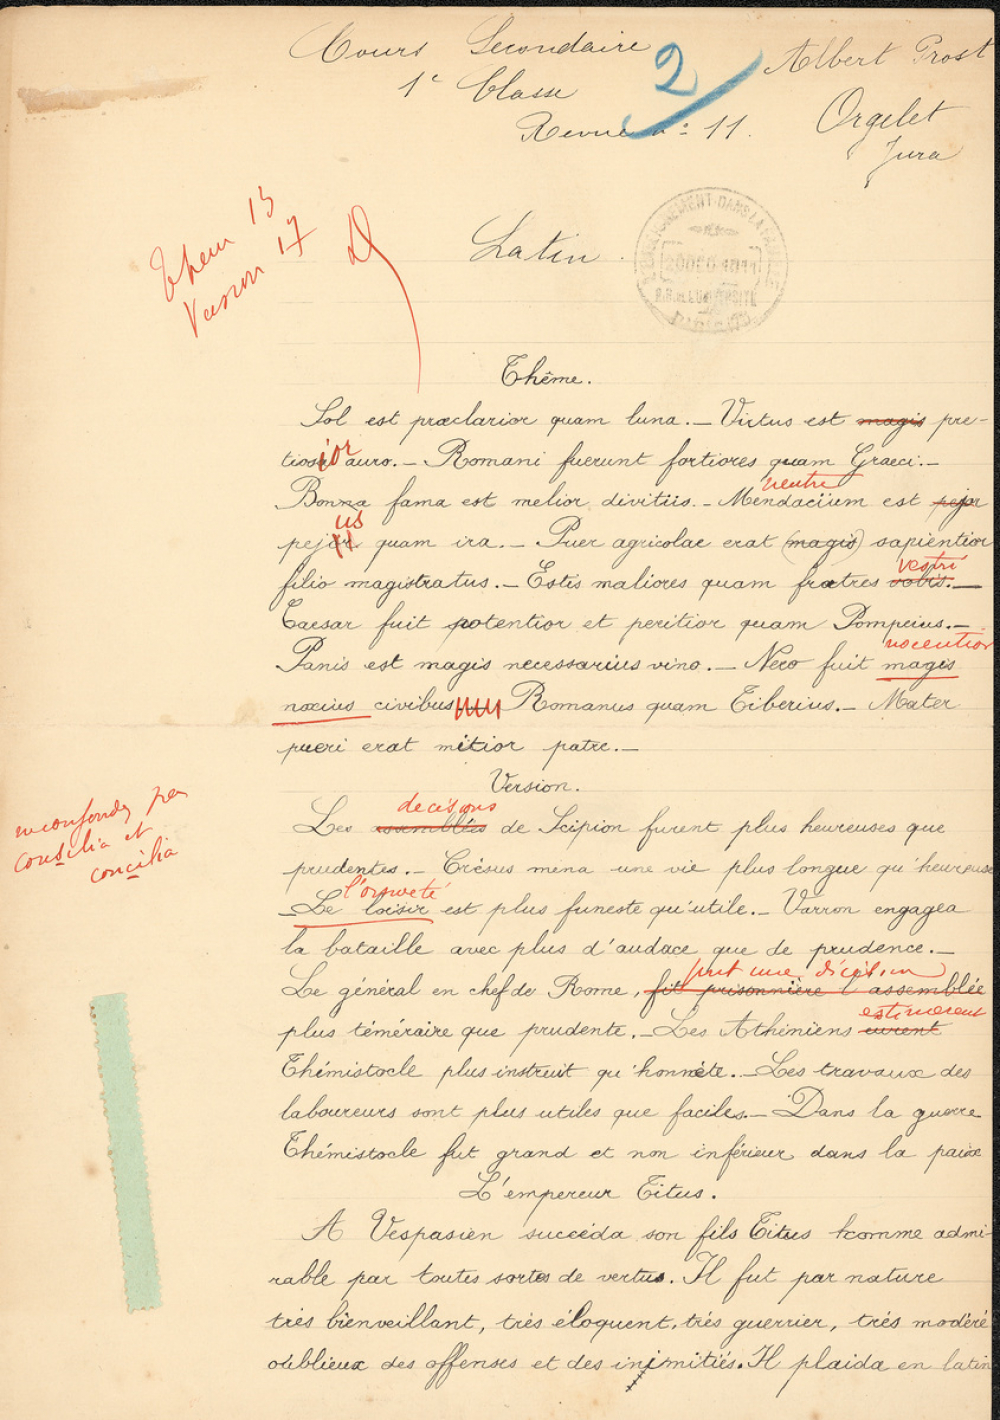 Cours Secondaire
1e Classe
2
Albert Prost
Revue n: 11.
Orgelet
Jura
Them 13
Version 17
Latin.
20 DEC 1911
Thême.
Sol est præclarior quam luna. — Virtus est magis pre-
tiosior auro. — Romani fuerunt fortiores quam Graeci. —
neutre
Bonna fama est melior divitiis. — Mendacium est pejor
us
pejor quam ira. — Puer agricolae erat (magis) sapientior
vestri
filio magistratus. — Estis maliores quam fratres vobis. —
Caesar fuit potentior et peritior quam Pompeius. —
nocentior
Panis est magis necessarius vino. — Nero fuit magis
noxius civibus Romanus quam Tiberius. — Mater
pueri erat mitior patre. —
Version.
decisions
Les assemblées de Scipion furent plus heureuses que
ne confondez pas
consilia et
concilia
prudentes. — Crésus mena une vie plus longue qu'heureuse
l'oisiveté
— Le loisir est plus funeste qu'utile. — Varron engagea
la bataille avec plus d'audace que de prudence. —
prit une décision
Le général en chef de Rome, fit prisonnière l'assemblée
estimèrent
plus téméraire que prudente. — Les Athéniens eurent
Thémistocle plus instruit qu'honnête. — Les travaux des
laboureurs sont plus utiles que faciles. — Dans la guerre
Thémistocle fut grand et non inférieur dans la paix
L'empereur Titus.
A Vespasien succéda son fils Titus homme admi-
rable par toutes sortes de vertus. Il fut par nature
très bienveillant, très éloquent, très guerrier, très modéré
oublieux des offenses et des inimitiés. Il plaida en latin